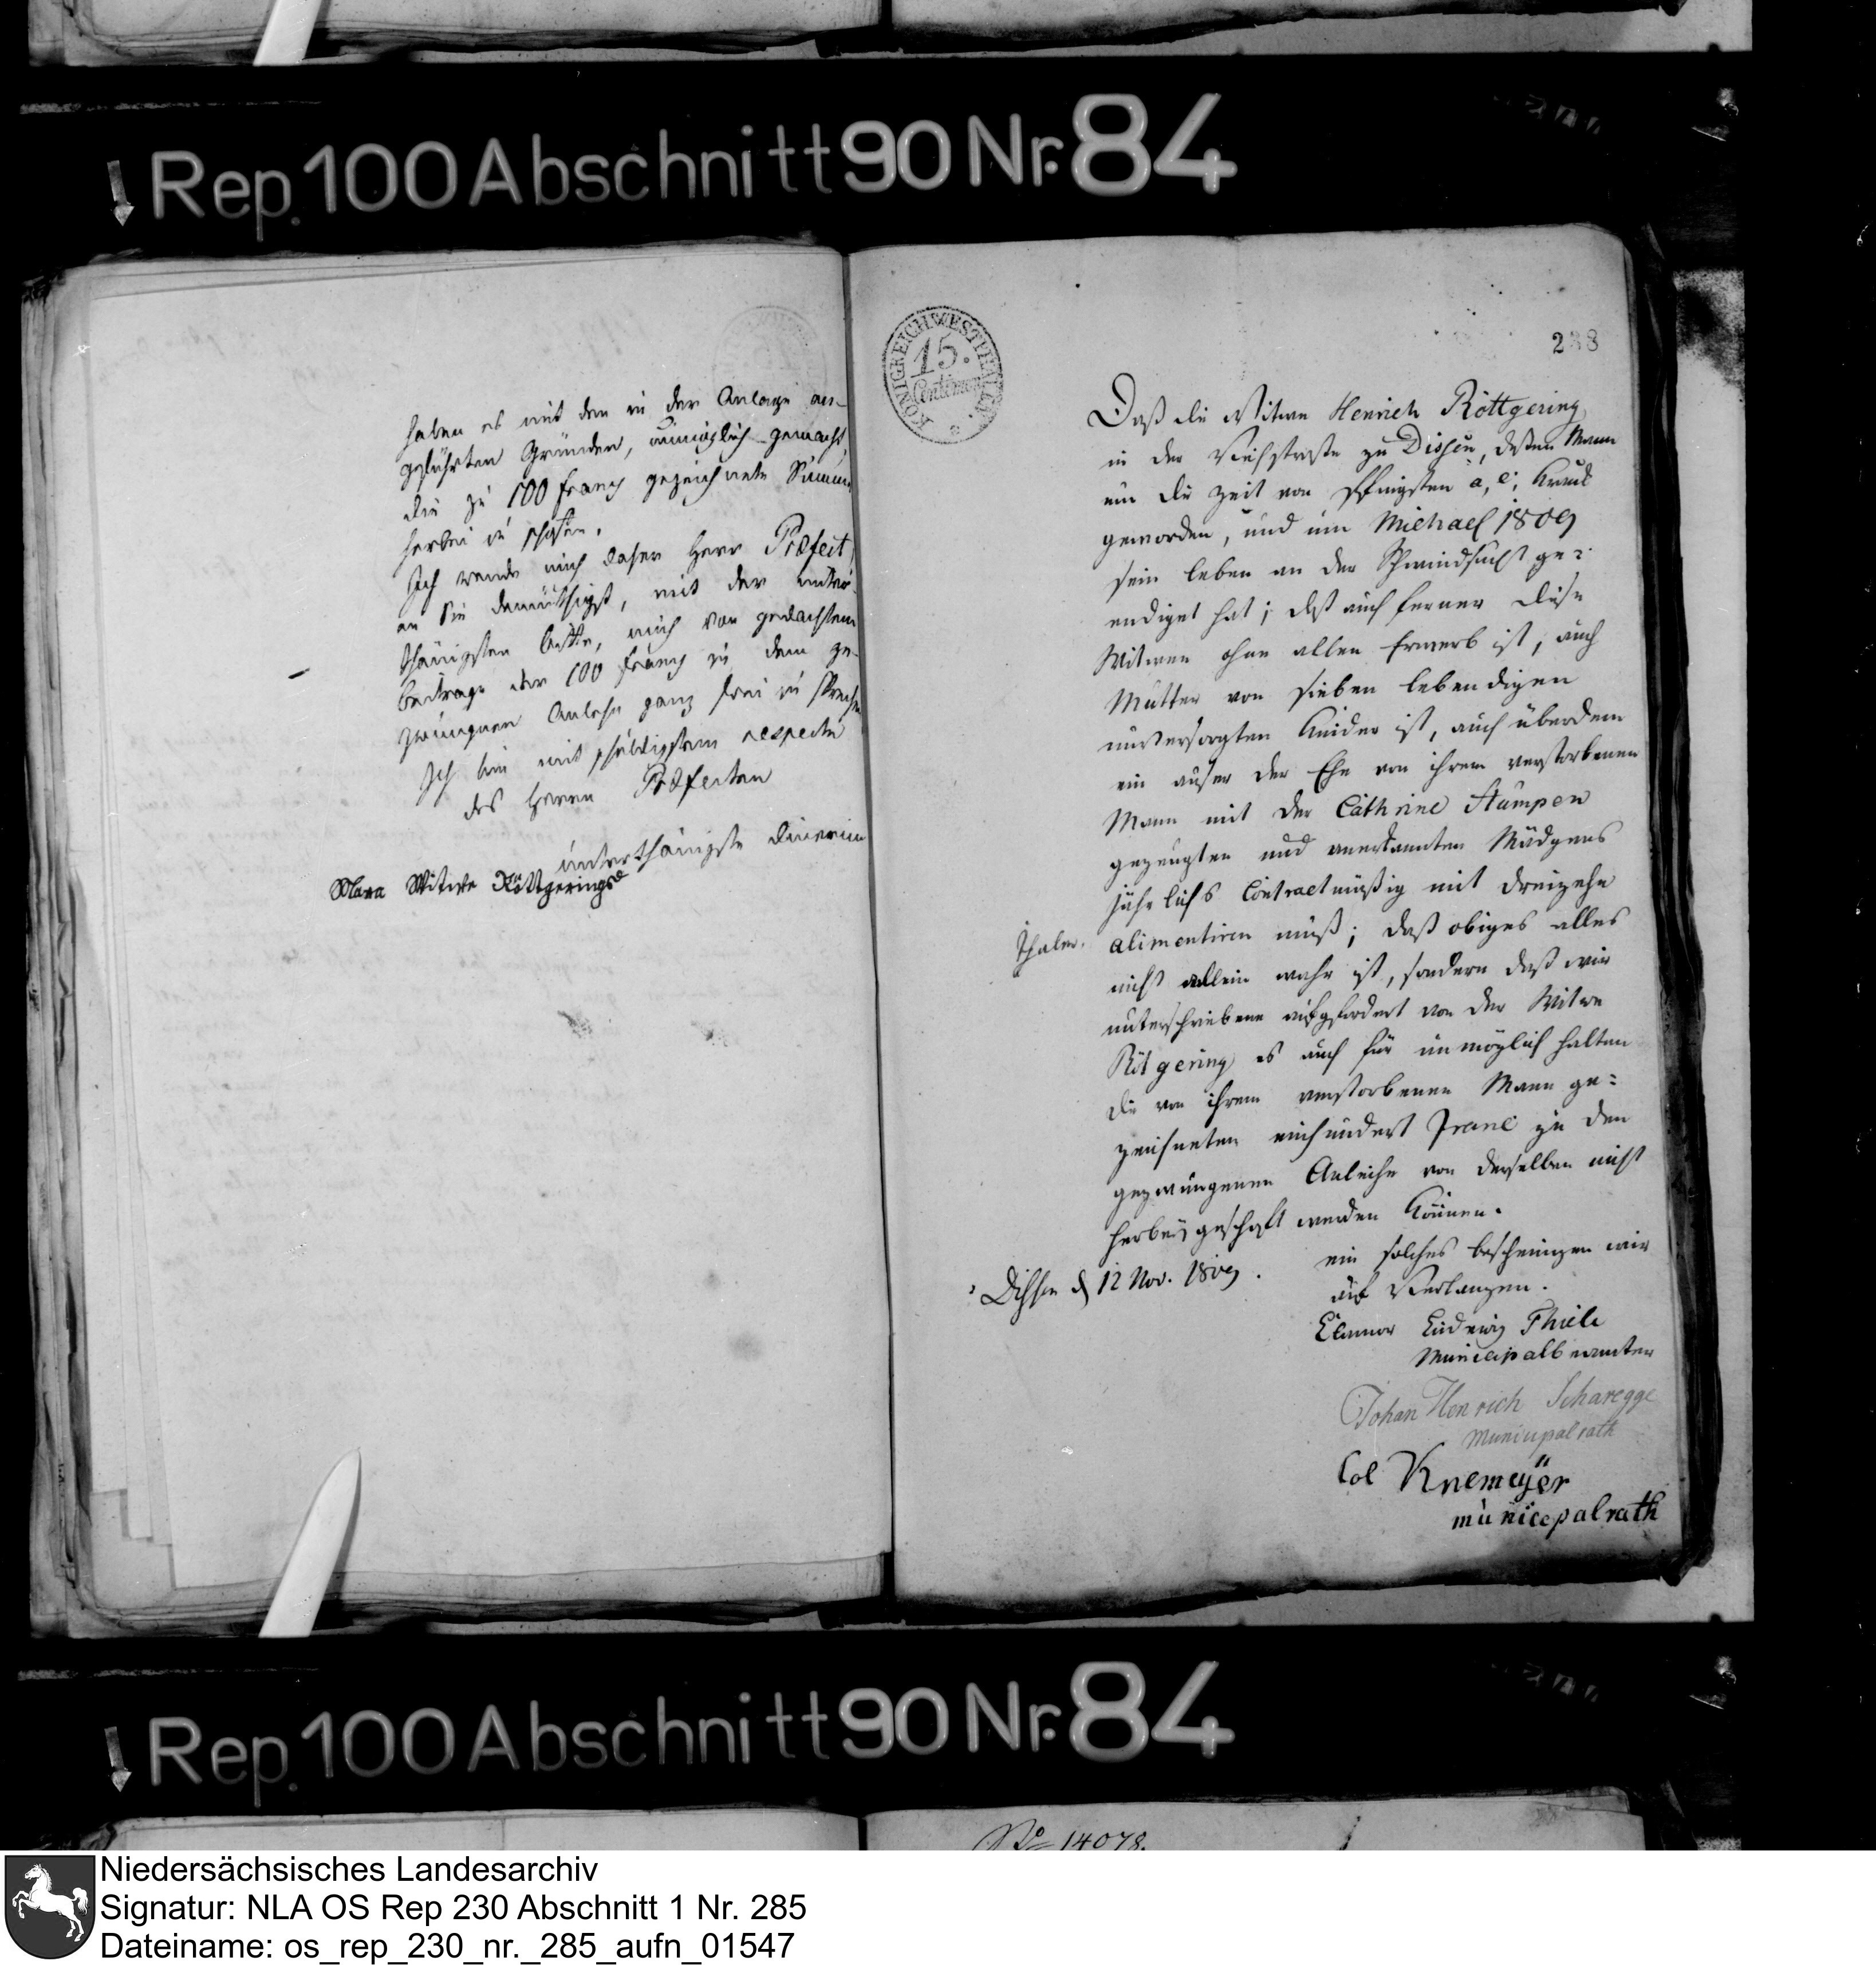 Rep. 100 Abschnitt 90 Nr. 84
haben es mit den in der Anlage an-
geführten Gründen, unmöglich gemacht,
die zu 100 Franc gezeichnete Summe
herbei zu schaffen.
Ich wende mich daher Herr Præfect
an Sie demüthigst, mit der unter-
thänigsten Bitte, mich von gedachtem
Beitrage der 100 Franc zu dem ge-
zwungnen Anlehn ganz frei zu sprechen
Ich bin mit schuldigstem respecte
des Herrn Præfecten
unterthänigste Dienerin
Witwe Röttgerings
KÖNIGREICH WESTPHALEN
15.
Centimen
238
Daß die Witwe Henrich Röttgering
in der Viehstraße zu Dissen, deßen Mann
um die Zeit von Pfingsten a. c. krank
geworden, und um Michael 1809
sein Leben an der Schwindsucht ge=
endiget hat; daß auch ferner diese
Witwen ohne allen Erwerb ist, auch
Mutter von sieben lebendigen
unversorgten Kinder ist, auch überdem
ein außer der Ehe von ihrem verstorbenen
Mann mit der Cathrine Stumpen
gezeugten und anerkannten Mädgens
jährlichs Contractmäßig mit dreizehn
Thaler. alimentiren muß; daß obiges alles
nicht allein wahr ist, sondern daß wir
unterschriebene aufgefordert von der Witwe
Rötgering es auch für unmöglich halten
die von ihrem verstorbenen Mann ge=
zeichneten einhundert Franc zu den
gezwungenen Anleihe von derselben nicht
herbey geschaft werden können.
Dissen d 12 Nov. 1809.
ein solches bescheinigen wir
auf Verlangen.
Ludewig Thiele
Municipalbeamter
Johan Henrich Scharegge
Municipalrath
Col Knemeÿer
municepalrath
Rep. 100 Abschnitt 90 Nr. 84
No 14078.
Niedersächsisches Landesarchiv
Signatur: NLA OS Rep 230 Abschnitt 1 Nr. 285
Dateiname: os_rep_230_nr._285_aufn_01547